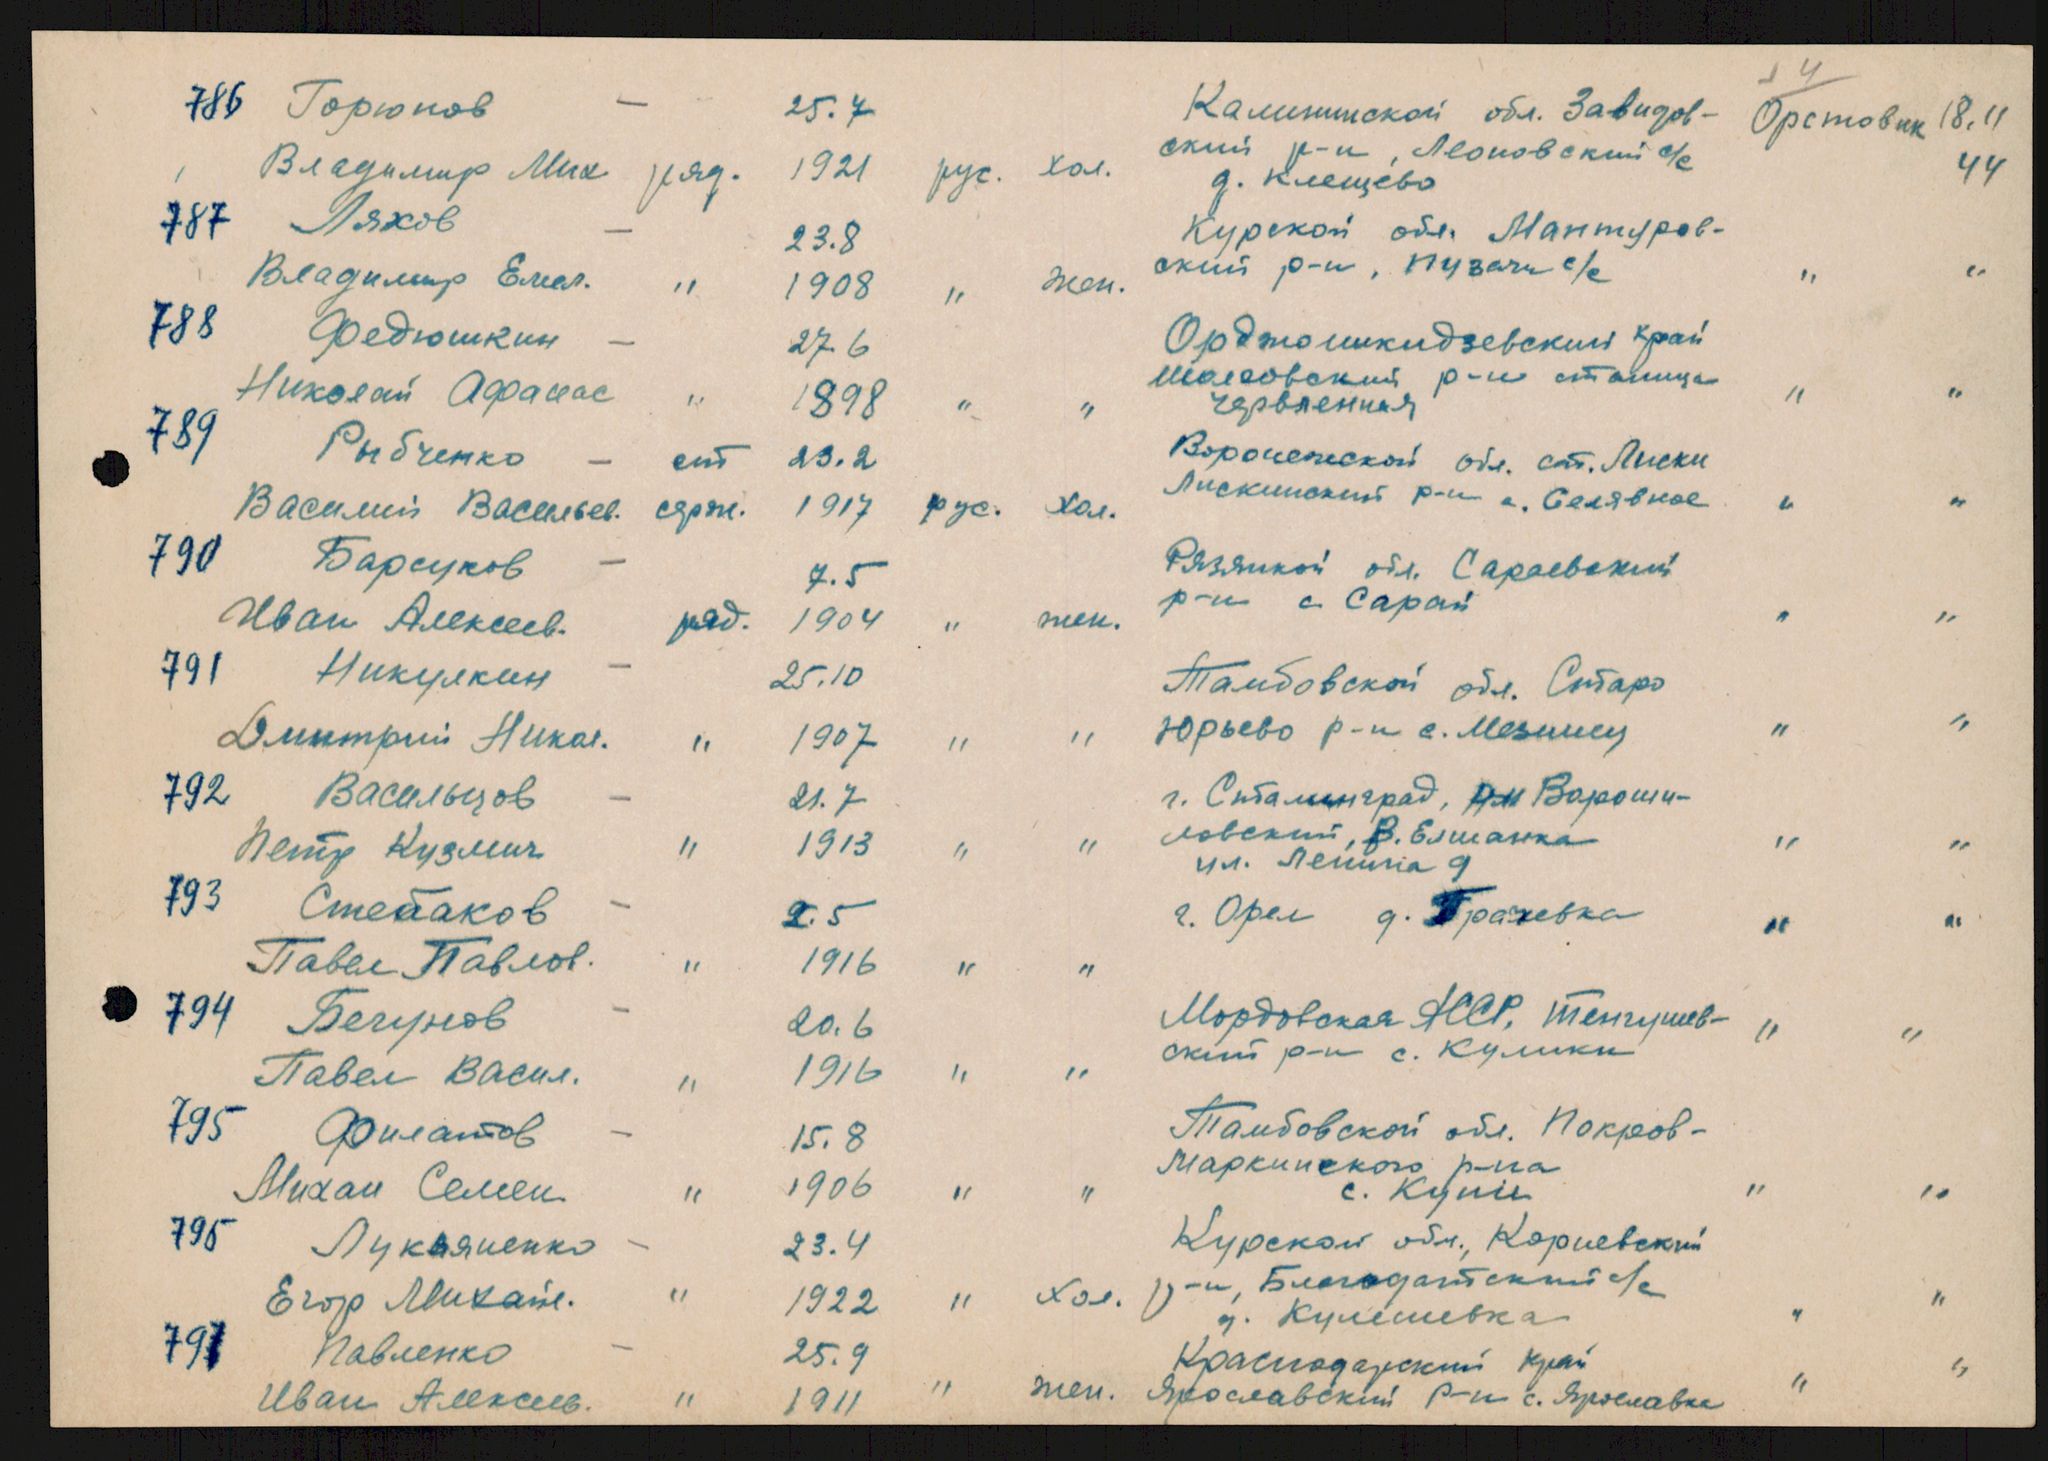 786 Горюнов — 25.7 Калининской обл. Завидов- Орстовик 18.11
Владимир Мих ряд. 1921 рус. хол. ский р-н, Леоновский с/с 44
д. Клещево
787 Ляхов — 23.8 Курской обл. Мантуров-
Владимир Емел. " 1908 " жен. ский р-н, Пузачи с/с " "
788 Федюшкин — 27.6 Орджоникидзевский край
Николай Афанас " 1898 " " р-н станица " "
Червленная
789 Рыбченко — ст 23.2 Воронежской обл. ст. Лиски
Василий Васильев. серж. 1917 рус. хол. Лискинский р-н с. Селявное " "
790 Барсуков — 7.5 Рязанкой обл. Сараевский
Иван Алексеев. ряд. 1904 " жен. р-н с Сараи " "
791 Никулкин — 25.10 Тамбовской обл. Старо
Дмитрий Никол. " 1907 " " Юрьево р-н с. " "
792 Васильцов — 21.7 г. Сталинград, Вороши-
Петр Кузмич " 1913 " " ловский, В. Елшанка " "
ул. Ленина 9
793 Степаков — 2.5 г. Орел д. Грачевка " "
Павел Павлов. " 1916 " "
794 Бегунов — 20.6 Мордовская АССР, Тенгушев- " "
Павел Васил. " 1916 " " ский р-н с. Кулики
795 Филатов — 15.8 Тамбовской обл. Покров-
Михаи Семен " 1906 " " Маркинского р-на
с. " "
796 Лукьяненко — 23.4 Курской обл., Корневский
Егор Михайл. " 1922 " хол. р-н, Благодатский с/с "
д. Кулешевка "
797 Павленко — 25.9 Краснодарский край
Иван Алексеев. " 1911 " жен. Ярославский р-н с. Ярославка " "